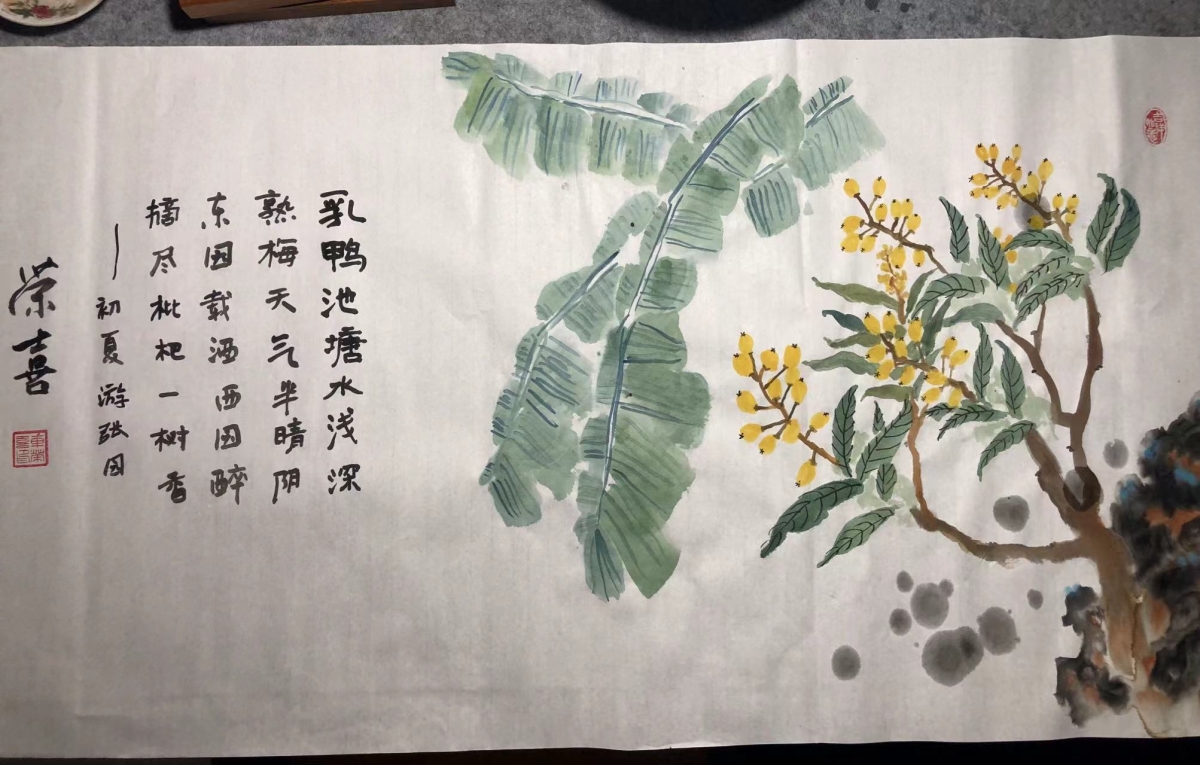 乳鸭池塘水浅深
熟梅天气半晴阴
东园载酒西园醉
摘尽枇杷一树香
——初夏游张园
荣喜